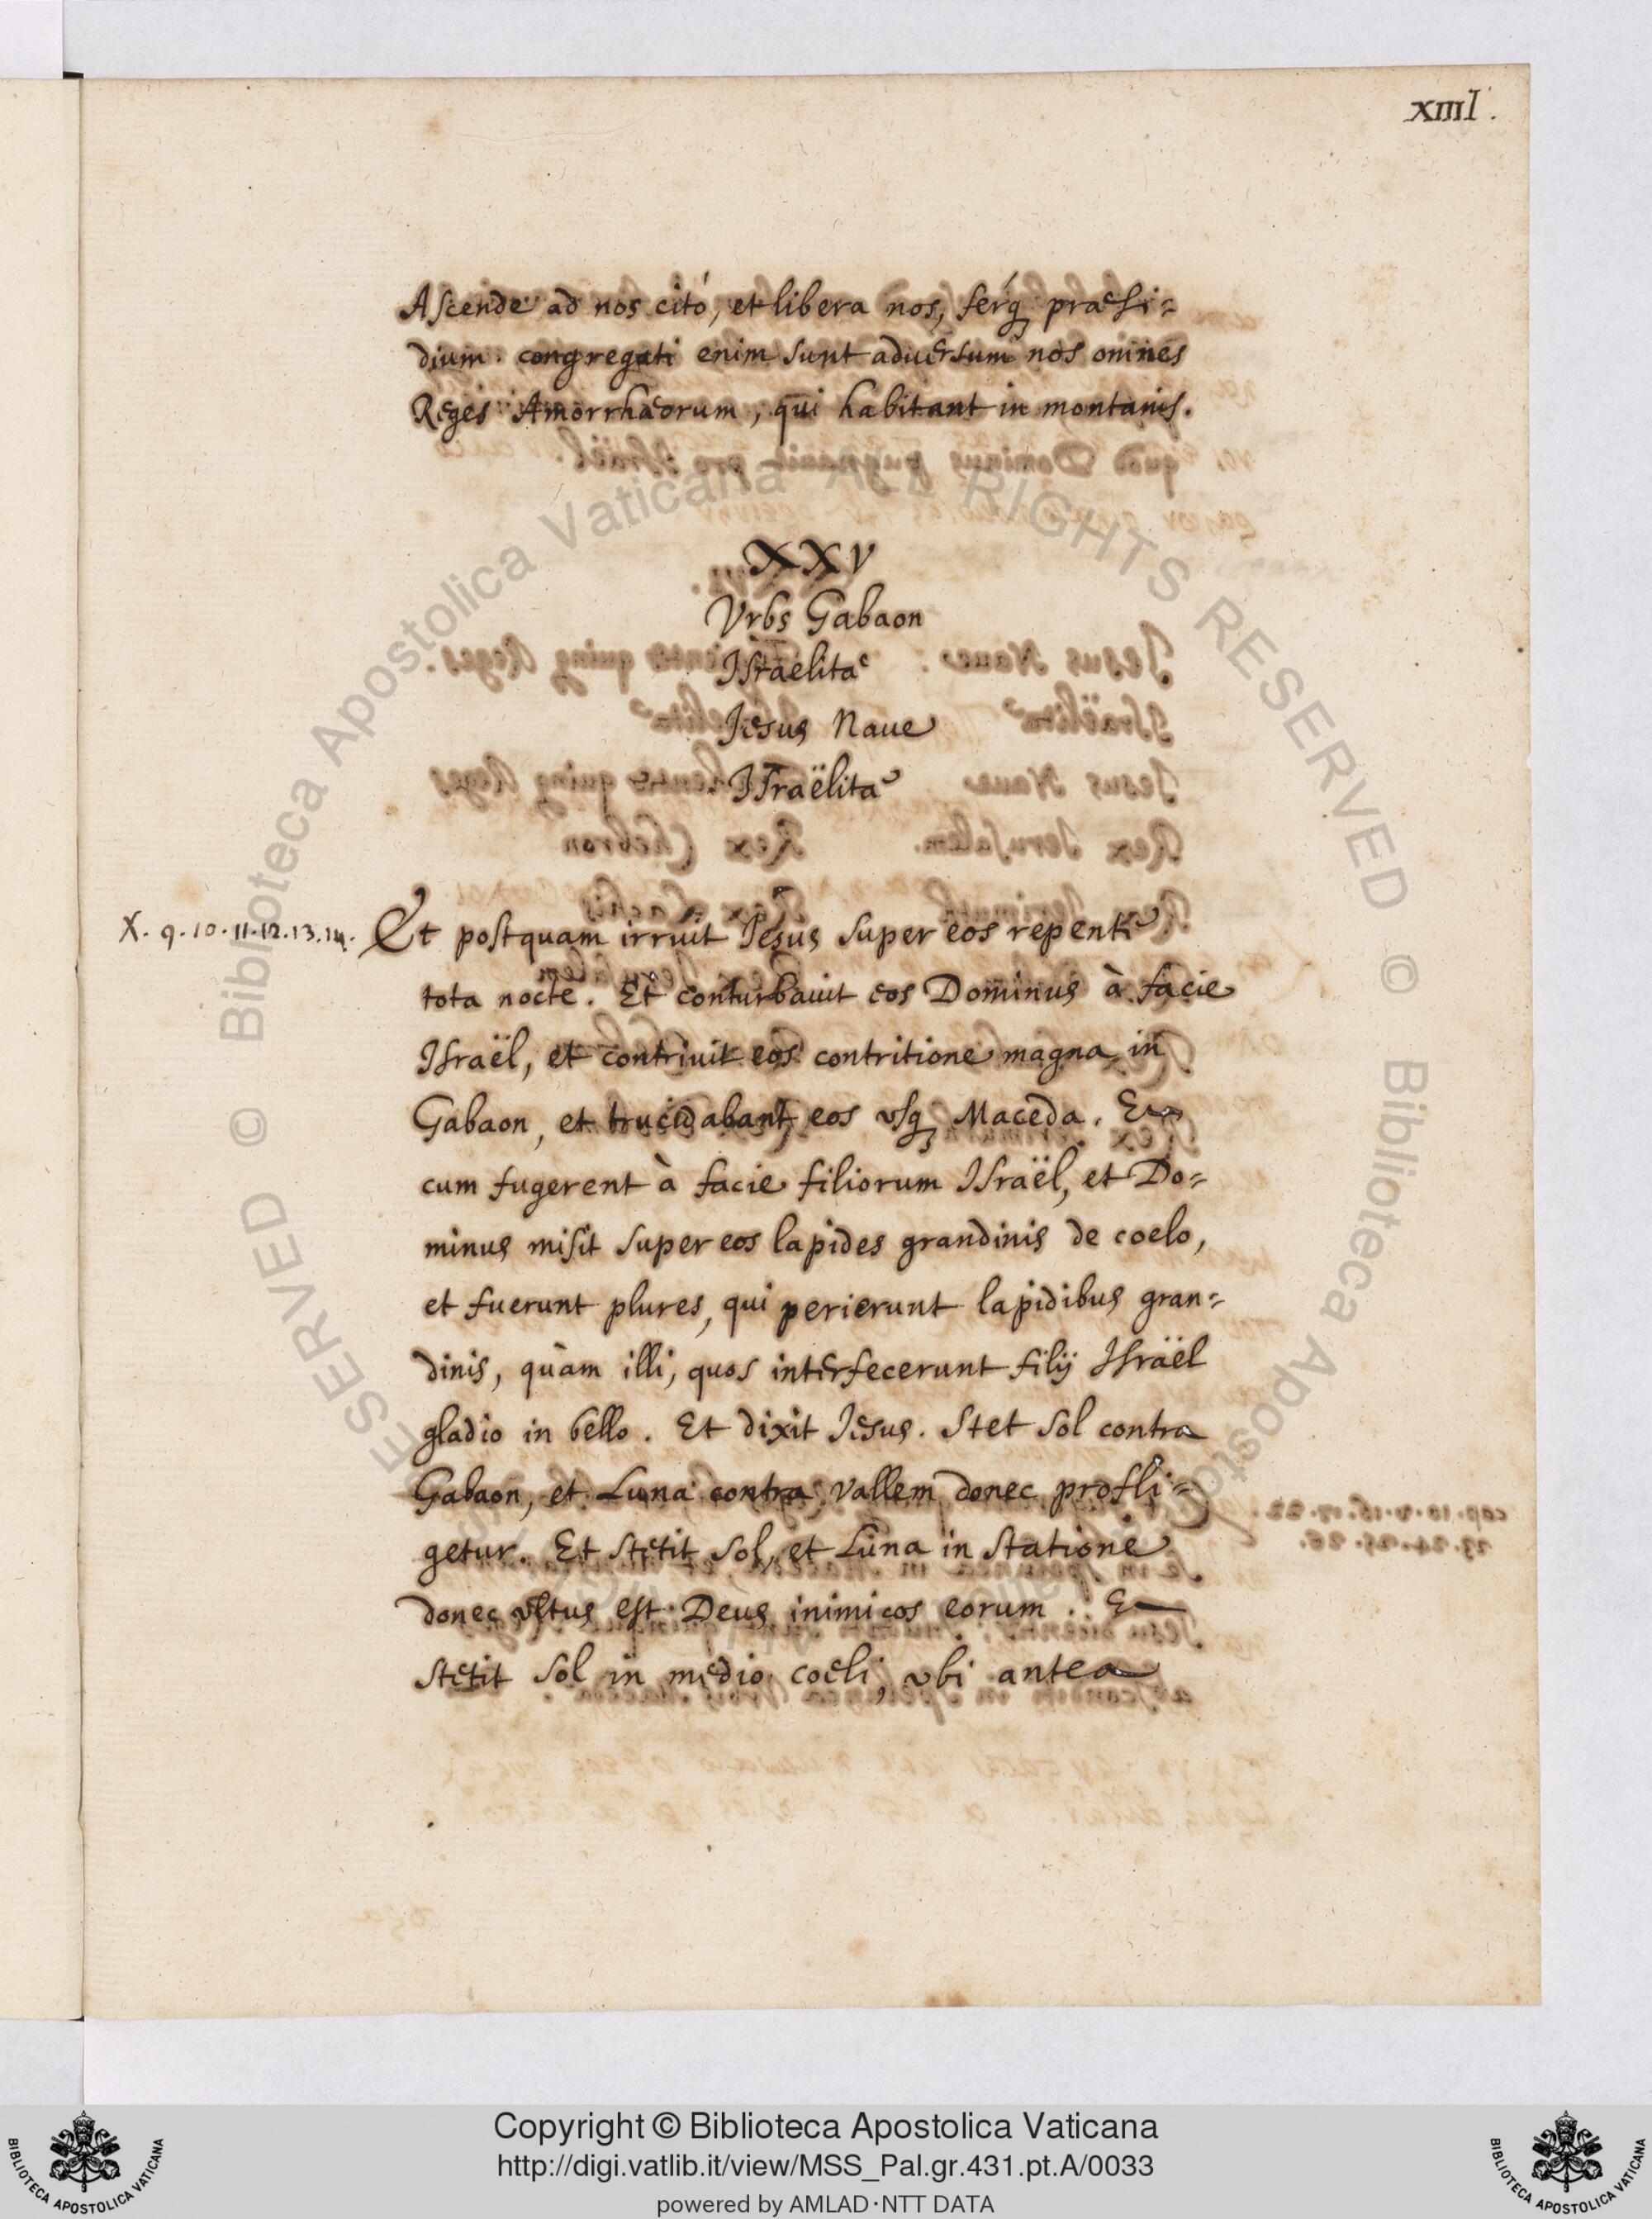 xiiiI.
Ascende ad nos citó, et libera nos, ferq; praesi-
dium. congregati enim sunt aduersum nos omnes
Reges Amorrhaeorum, qui habitant in montanis.
XXV
Vrbs Gabaon
Israelitae
Jesus Naue
Israëlitae
X. 9. 10. 11. 12. 13. 14.
Et postquam irruit Jesus super eos repente
tota nocte. Et conturbauit eos Dominus à facie
Israël, et contriuit eos contritione magna in
Gabaon, et trucidabant eos vsq; Maceda. Et
cum fugerent à facie filiorum Israël, et Do-
minus misit super eos lapides grandinis de coelo,
et fuerunt plures, qui perierunt lapidibus gran-
dinis, quàm illi, quos interfecerunt filij Israël
gladio in bello. Et dixit Jesus. Stet sol contra
Gabaon, et Luna contra vallem donec profli-
getur. Et stetit sol, et Luna in statione
donec vltus est Deus inimicos eorum. Et
stetit sol in medio coeli, vbi antea
© Biblioteca Apostolica Vaticana ALL RIGHTS RESERVED © Biblioteca Apostolica Vaticana ALL RIGHTS RESERVED
Copyright © Biblioteca Apostolica Vaticana
http://digi.vatlib.it/view/MSS_Pal.gr.431.pt.A/0033
powered by AMLAD·NTT DATA
BIBLIOTECA APOSTOLICA VATICANA
BIBLIOTECA APOSTOLICA VATICANA